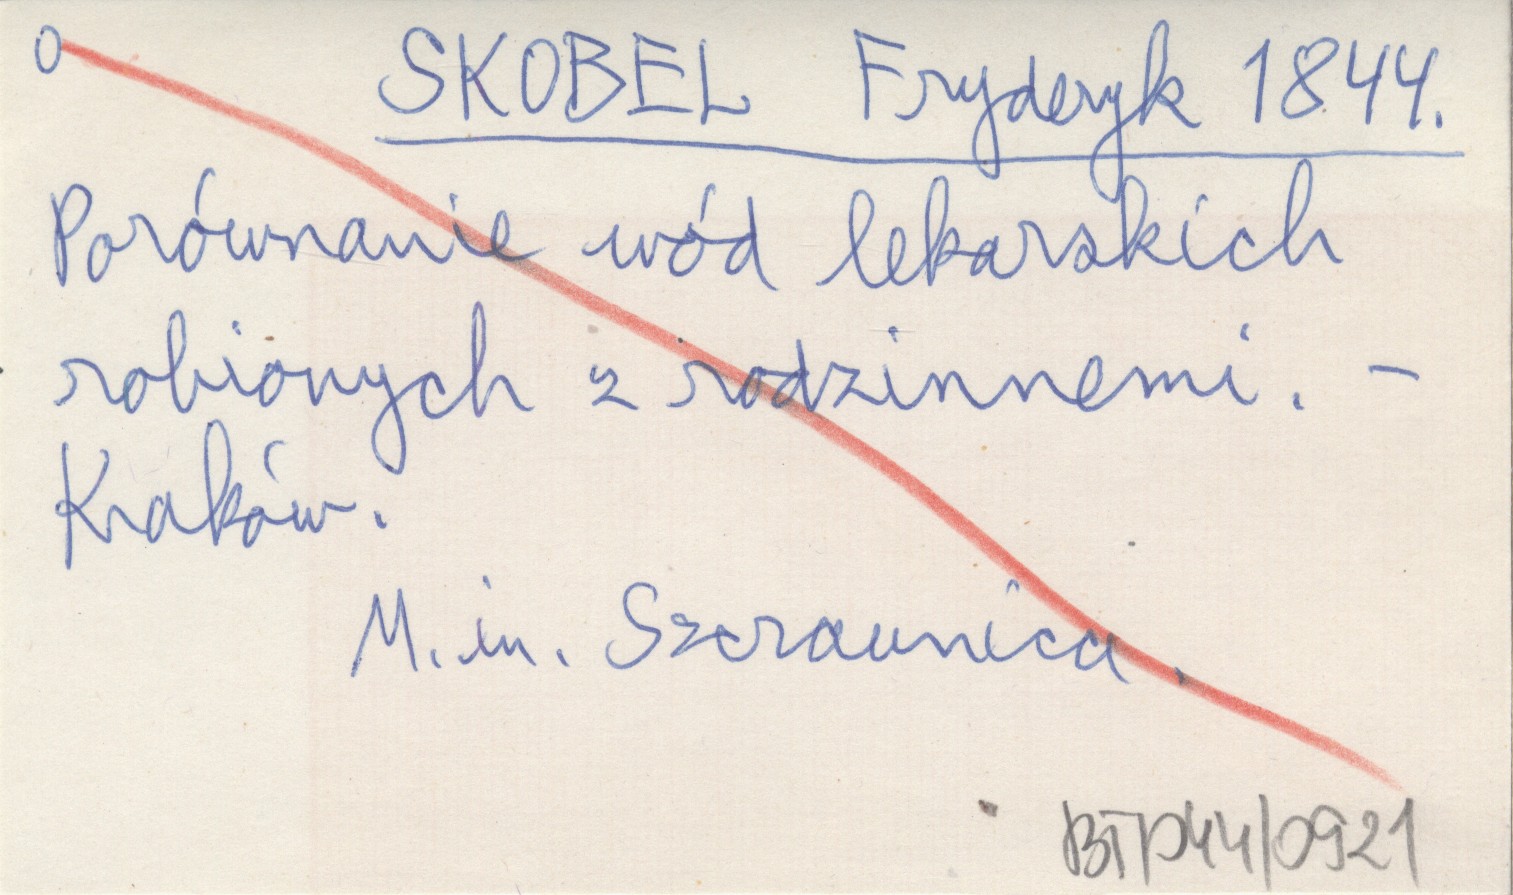 O SKOBEL Fryderyk 1844.
Porównanie wód lekarskich
robionych z rodzinnemi. -
Kraków.
M. in. Szczawnica.
BTP44/0921